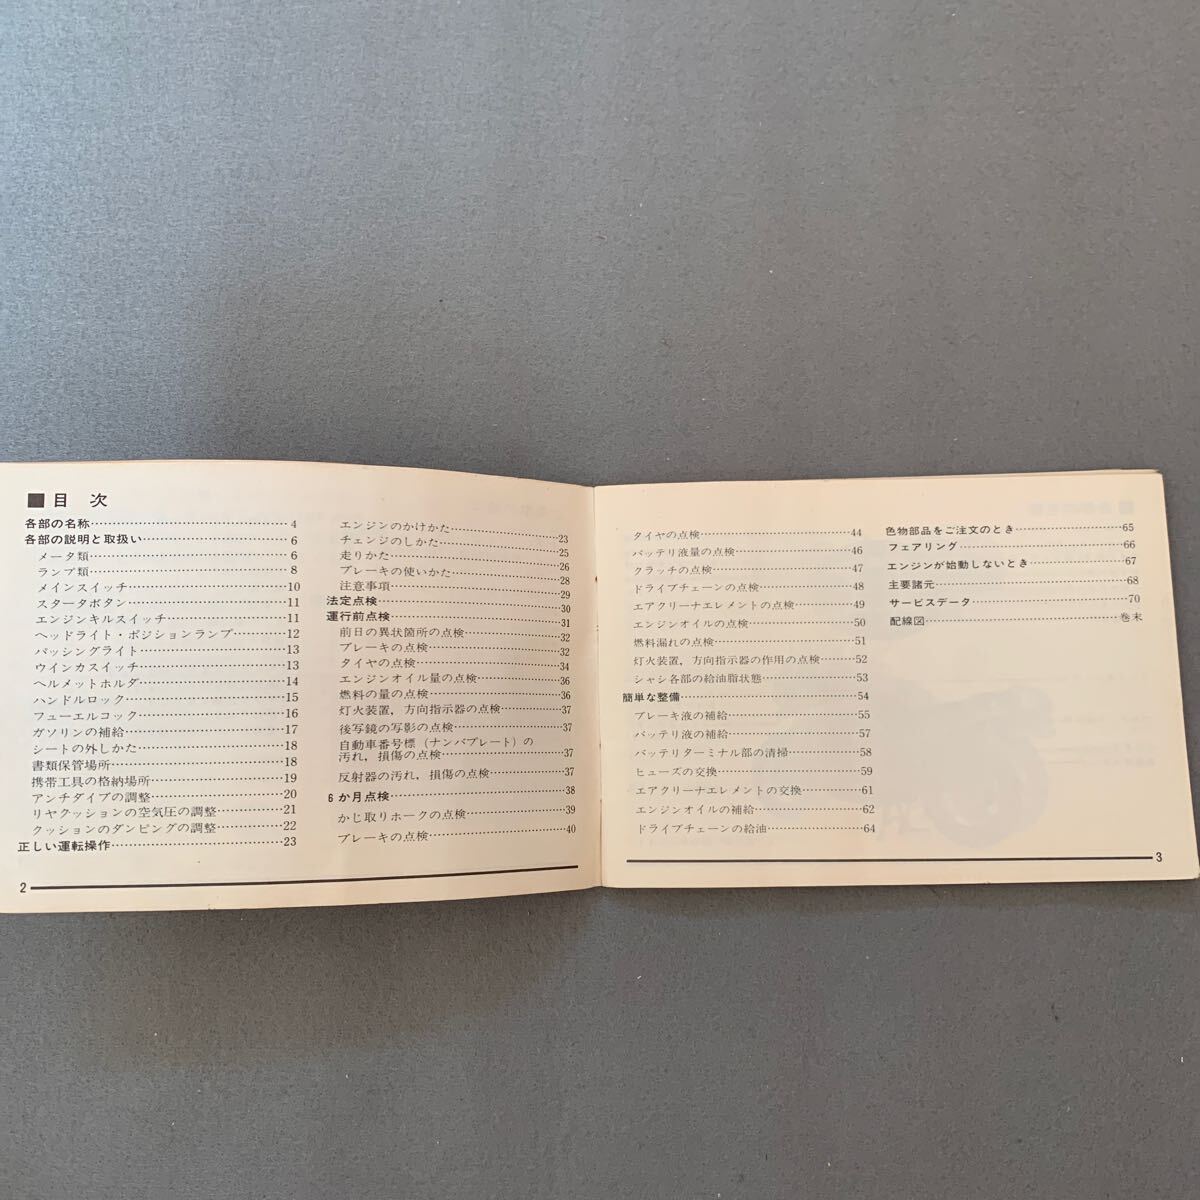 ■目 次
各部の名称……4
各部の説明と取扱い……6
メータ類……6
ランプ類……8
メインスイッチ……10
スタータボタン……11
エンジンキルスイッチ……11
ヘッドライト・ポジションランプ……12
パッシングライト……13
ウインカスイッチ……13
ヘルメットホルダ……14
ハンドルロック……15
フューエルコック……16
ガソリンの補給……17
シートの外しかた……18
書類保管場所……18
携帯工具の格納場所……19
アンチダイブの調整……20
リヤクッションの空気圧の調整……21
クッションのダンピングの調整……22
正しい運転操作……23
エンジンのかけかた……23
チェンジのしかた……25
走りかた……26
ブレーキの使いかた……28
注意事項……29
法定点検……30
運行前点検……31
前日の異状箇所の点検……32
ブレーキの点検……32
タイヤの点検……34
エンジンオイル量の点検……36
燃料の量の点検……36
灯火装置，方向指示器の点検……37
後写鏡の写影の点検……37
自動車番号標（ナンバプレート）の
汚れ，損傷の点検……37
反射器の汚れ，損傷の点検……37
6か月点検……38
かじ取りホークの点検……39
ブレーキの点検……40
2
タイヤの点検……44
バッテリ液量の点検……46
クラッチの点検……47
ドライブチェーンの点検……48
エアクリーナエレメントの点検……49
エンジンオイルの点検……50
燃料漏れの点検……51
灯火装置，方向指示器の作用の点検……52
シャシ各部の給油脂状態……53
簡単な整備……54
ブレーキ液の補給……55
バッテリ液の補給……57
バッテリターミナル部の清掃……58
ヒューズの交換……59
エアクリーナエレメントの交換……61
エンジンオイルの補給……62
ドライブチェーンの給油……64
色物部品をご注文のとき……65
フェアリング……66
エンジンが始動しないとき……67
主要諸元……68
サービスデータ……70
配線図……巻末
3